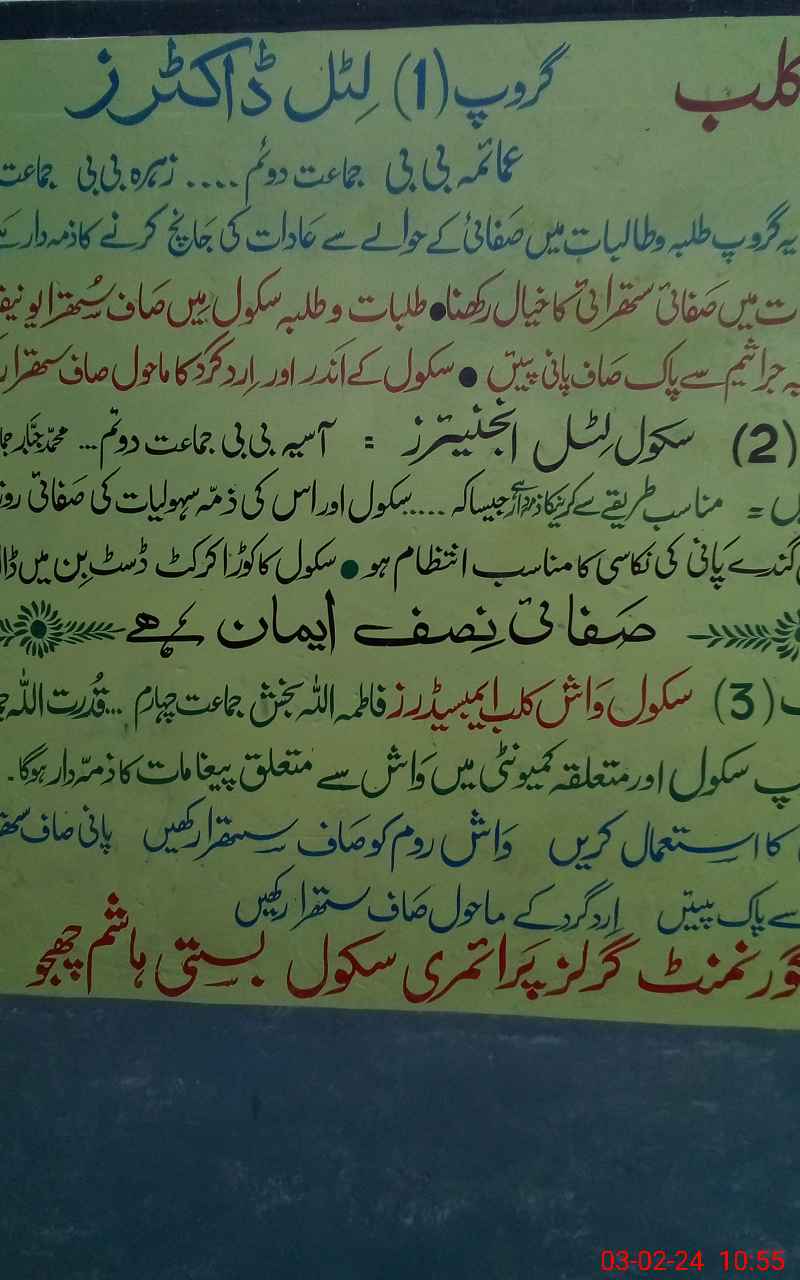 کلب گروپ (1) لِٹل ڈاکٹرز
عمائمہ بی بی جماعت دوئم .... زہرہ بی بی جماعت
یہ گروپ طلبہ و طالبات میں صفائی کے حوالے سے عادات کی جانچ کرنے کا ذمہ دار ہے
ت میں صفائی ستھرائی کا خیال رکھنا ● طلبات و طلبہ سکول میں صاف سُتھرا یونیف
جراثیم سے پاک صاف پانی پیئیں ● سکول کے اَندر اور اِردگرد کا ماحول صاف ستھرا
(2) سکول لِٹل انجنیئرز = آسیہ بی بی جماعت دوئم ... محمد جبّار
یں = مناسب طریقے سے جیسا کہ .... سکول اور اس کی ذمّہ سہولیات کی صفائی روز
گندے پانی کی نکاسی کا مناسب انتظام ہو ● سکول کا کوڑا کرکٹ ڈسٹ بِن میں ڈال
صَفائی نِصف ایمان ہے
(3) سکول وَاش کلب ایمبیسیڈرز فاطمہ اللہ بخش جماعت چہارم ... قُدرت اللہ
پ سکول اور متعلقہ کمیونٹی میں وَاش سے متعلق پیغامات کا ذمّہ دار ہوگا۔
کا استعمال کریں وَاش روم کو صَاف ستھرا رکھیں پانی صاف
سے پاک پیئیں اِردگرد کے ماحول صَاف ستھرا رکھیں
گورنمنٹ گرلز پَرائمری سکول بستی ہاشم چھجو
03-02-24 10:55